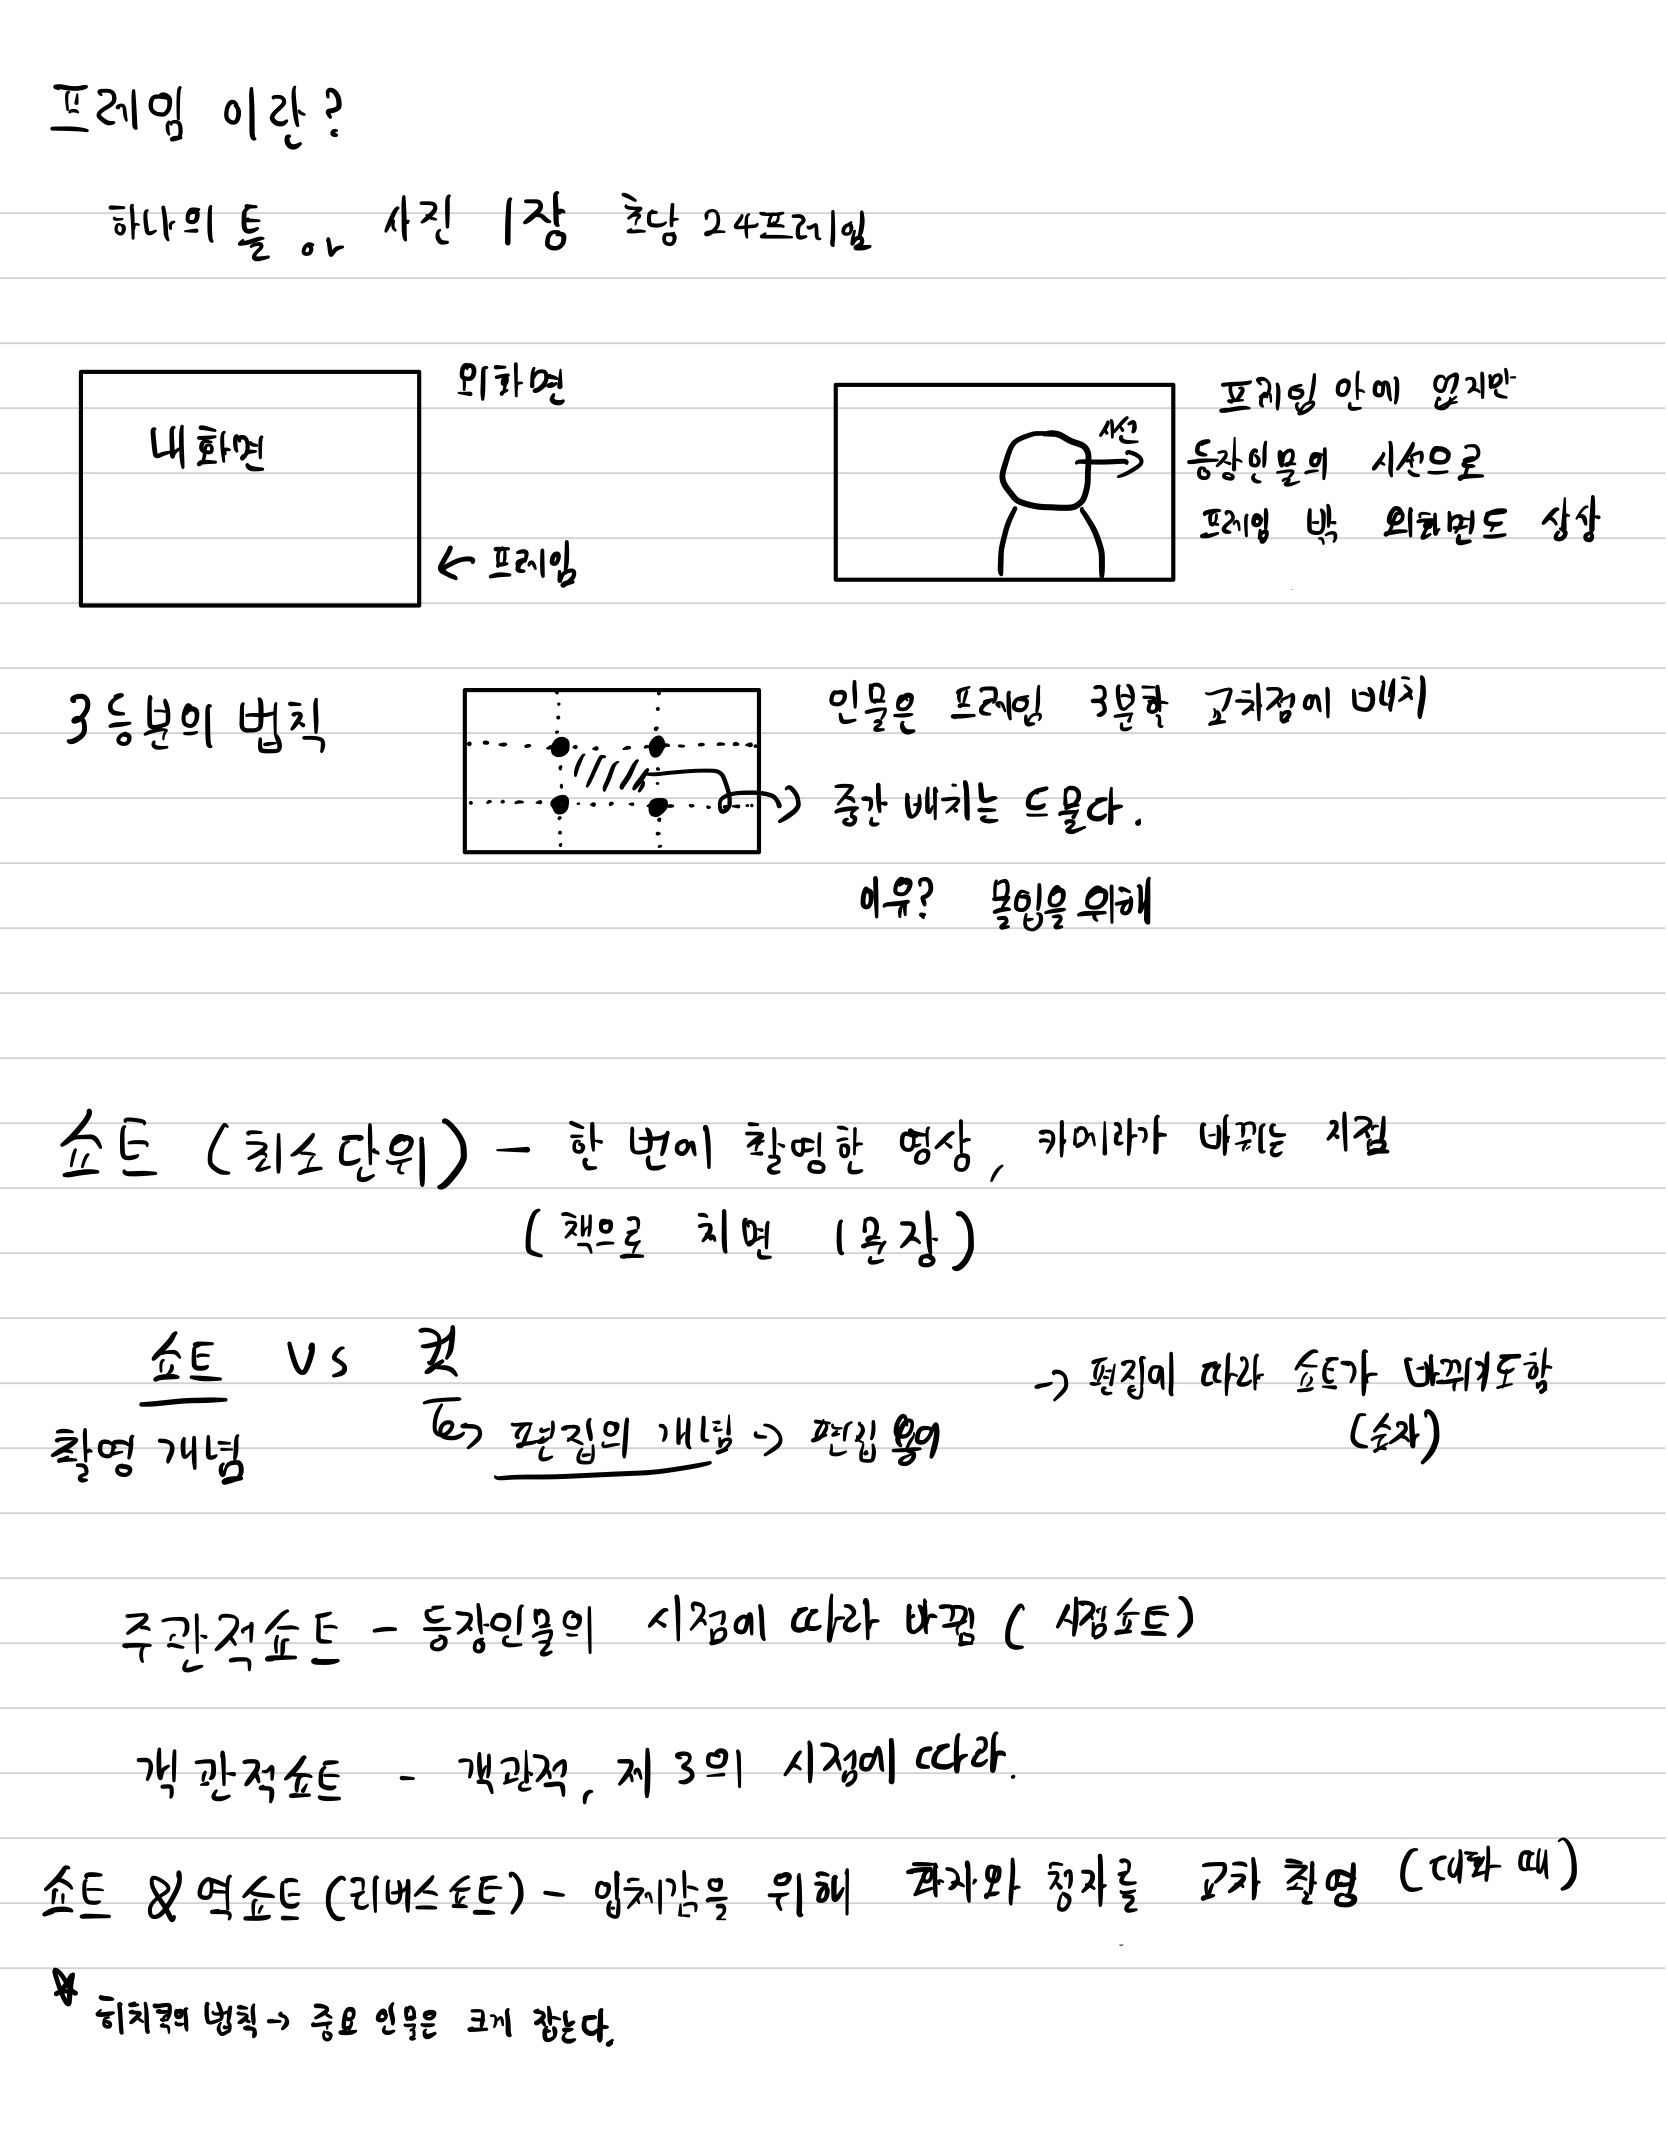 프레임 이란?
하나의 틀 or 사진 1장 초당 24프레임
외화면
내화면
← 프레임
시선
프레임 안에 없지만
등장인물의 시선으로
프레임 밖 외화면도 상상
3등분의 법칙
인물은 프레임 3분할 교차점에 배치
중간 배치는 드물다.
이유? 몰입을 위해
쇼트 (최소단위) - 한 번에 촬영한 영상, 카메라가 바뀌는 지점
(책으로 치면 1문장)
쇼트 vs 컷
촬영 개념
→ 편집의 개념 → 편집 용어
→ 편집에 따라 쇼트가 바뀌기도함
(숫자)
주관적쇼트 - 등장인물의 시점에 따라 바뀜 (시점쇼트)
객관적쇼트 - 객관적, 제 3의 시점에 따라.
쇼트 & 역쇼트 (리버스쇼트) - 입체감을 위해 화자와 청자를 교차 촬영 (대화 때)
히치콕의 법칙 → 중요 인물은 크게 잡는다.